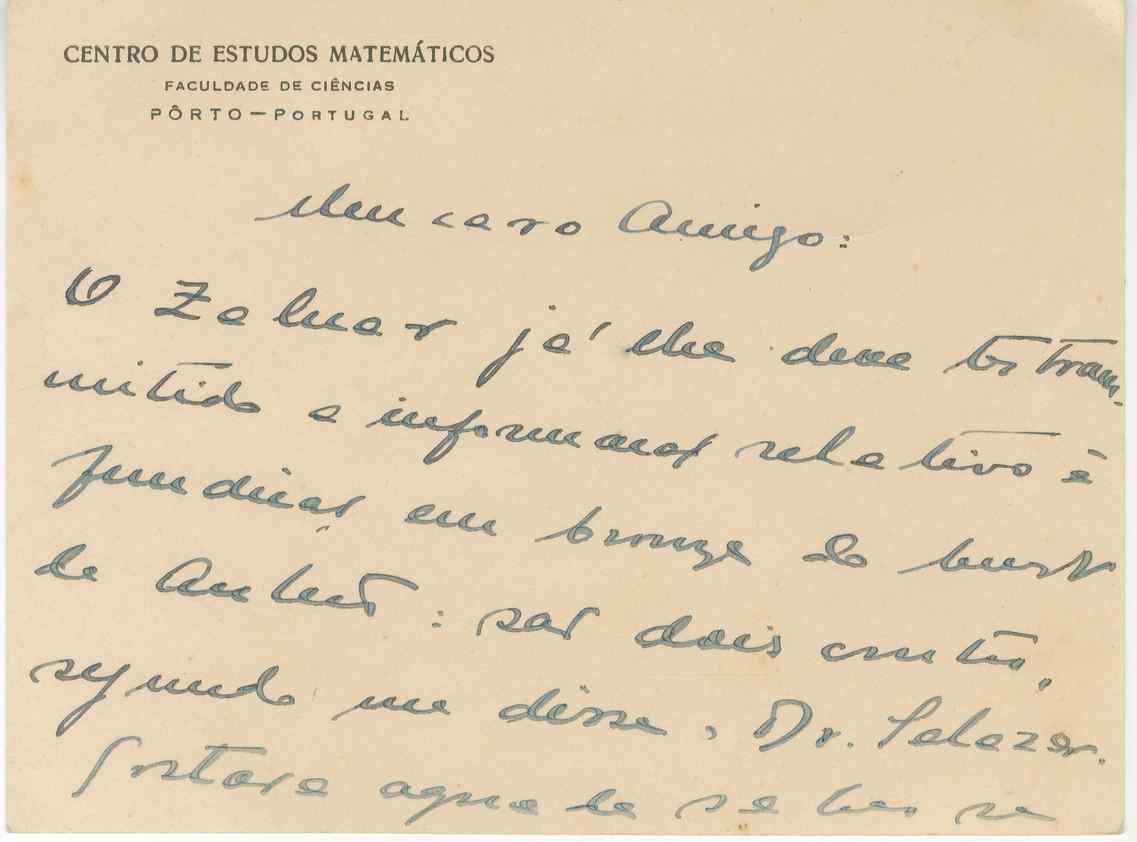 CENTRO DE ESTUDOS MATEMÁTICOS
FACULDADE DE CIÊNCIAS
PÔRTO — PORTUGAL
Meu caro Amigo:
O Zaluar já lhe deve ter trans-
mitido a informação relativo à
fundição em bronze do busto
de Antero: são dois contos,
segundo me disse o Dr. Salazar.
Gostava agora de saber se